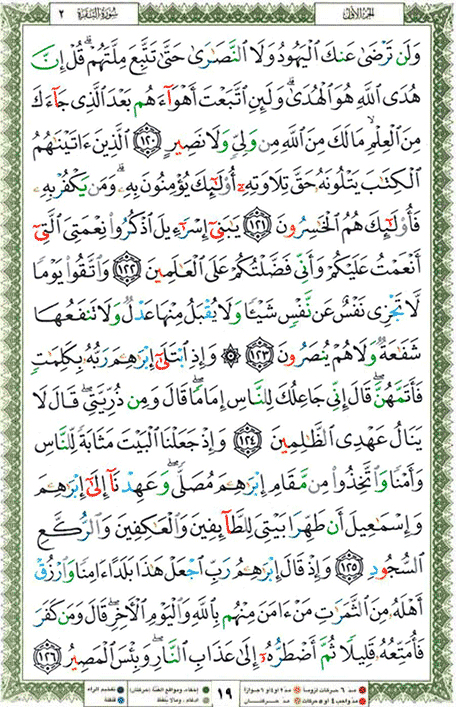 سُورَةُ البَقَرَةِ ٢
الجزء الأول
وَلَن تَرْضَىٰ عَنكَ ٱلْيَهُودُ وَلَا ٱلنَّصَٰرَىٰ حَتَّىٰ تَتَّبِعَ مِلَّتَهُمْ ۗ قُلْ إِنَّ
هُدَى ٱللَّهِ هُوَ ٱلْهُدَىٰ ۗ وَلَئِنِ ٱتَّبَعْتَ أَهْوَآءَهُم بَعْدَ ٱلَّذِى جَآءَكَ
مِنَ ٱلْعِلْمِ ۙ مَا لَكَ مِنَ ٱللَّهِ مِن وَلِىٍّ وَلَا نَصِيرٍ ١٢٠ ٱلَّذِينَ ءَاتَيْنَٰهُمُ
ٱلْكِتَٰبَ يَتْلُونَهُۥ حَقَّ تِلَاوَتِهِۦٓ أُو۟لَٰٓئِكَ يُؤْمِنُونَ بِهِۦ ۗ وَمَن يَكْفُرْ بِهِۦ
فَأُو۟لَٰٓئِكَ هُمُ ٱلْخَٰسِرُونَ ١٢١ يَٰبَنِىٓ إِسْرَٰٓءِيلَ ٱذْكُرُوا۟ نِعْمَتِىَ ٱلَّتِىٓ
أَنْعَمْتُ عَلَيْكُمْ وَأَنِّى فَضَّلْتُكُمْ عَلَى ٱلْعَٰلَمِينَ ١٢٢ وَٱتَّقُوا۟ يَوْمًا
لَّا تَجْزِى نَفْسٌ عَن نَّفْسٍ شَيْـًٔا وَلَا يُقْبَلُ مِنْهَا عَدْلٌ وَلَا تَنفَعُهَا
شَفَٰعَةٌ وَلَا هُمْ يُنصَرُونَ ١٢٣ ۞ وَإِذِ ٱبْتَلَىٰٓ إِبْرَٰهِۦمَ رَبُّهُۥ بِكَلِمَٰتٍ
فَأَتَمَّهُنَّ ۖ قَالَ إِنِّى جَاعِلُكَ لِلنَّاسِ إِمَامًا ۖ قَالَ وَمِن ذُرِّيَّتِى ۖ قَالَ لَا
يَنَالُ عَهْدِى ٱلظَّٰلِمِينَ ١٢٤ وَإِذْ جَعَلْنَا ٱلْبَيْتَ مَثَابَةً لِّلنَّاسِ
وَأَمْنًا وَٱتَّخِذُوا۟ مِن مَّقَامِ إِبْرَٰهِۦمَ مُصَلًّى ۖ وَعَهِدْنَآ إِلَىٰٓ إِبْرَٰهِۦمَ
وَإِسْمَٰعِيلَ أَن طَهِّرَا بَيْتِىَ لِلطَّآئِفِينَ وَٱلْعَٰكِفِينَ وَٱلرُّكَّعِ
ٱلسُّجُودِ ١٢٥ وَإِذْ قَالَ إِبْرَٰهِۦمُ رَبِّ ٱجْعَلْ هَٰذَا بَلَدًا ءَامِنًا وَٱرْزُقْ
أَهْلَهُۥ مِنَ ٱلثَّمَرَٰتِ مَنْ ءَامَنَ مِنْهُم بِٱللَّهِ وَٱلْيَوْمِ ٱلْءَاخِرِ ۖ قَالَ وَمَن كَفَرَ
فَأُمَتِّعُهُۥ قَلِيلًا ثُمَّ أَضْطَرُّهُۥٓ إِلَىٰ عَذَابِ ٱلنَّارِ ۖ وَبِئْسَ ٱلْمَصِيرُ ١٢٦
مدّ ٦ حركات لزوماً مدّ ٢ أو ٤ أو ٦ جوازاً
إخفاء، ومواقع الغنة (حركتان) تفخيم الراء
مدّ حركتان
إدغام، وما لا يلفظ قلقلة
١٩